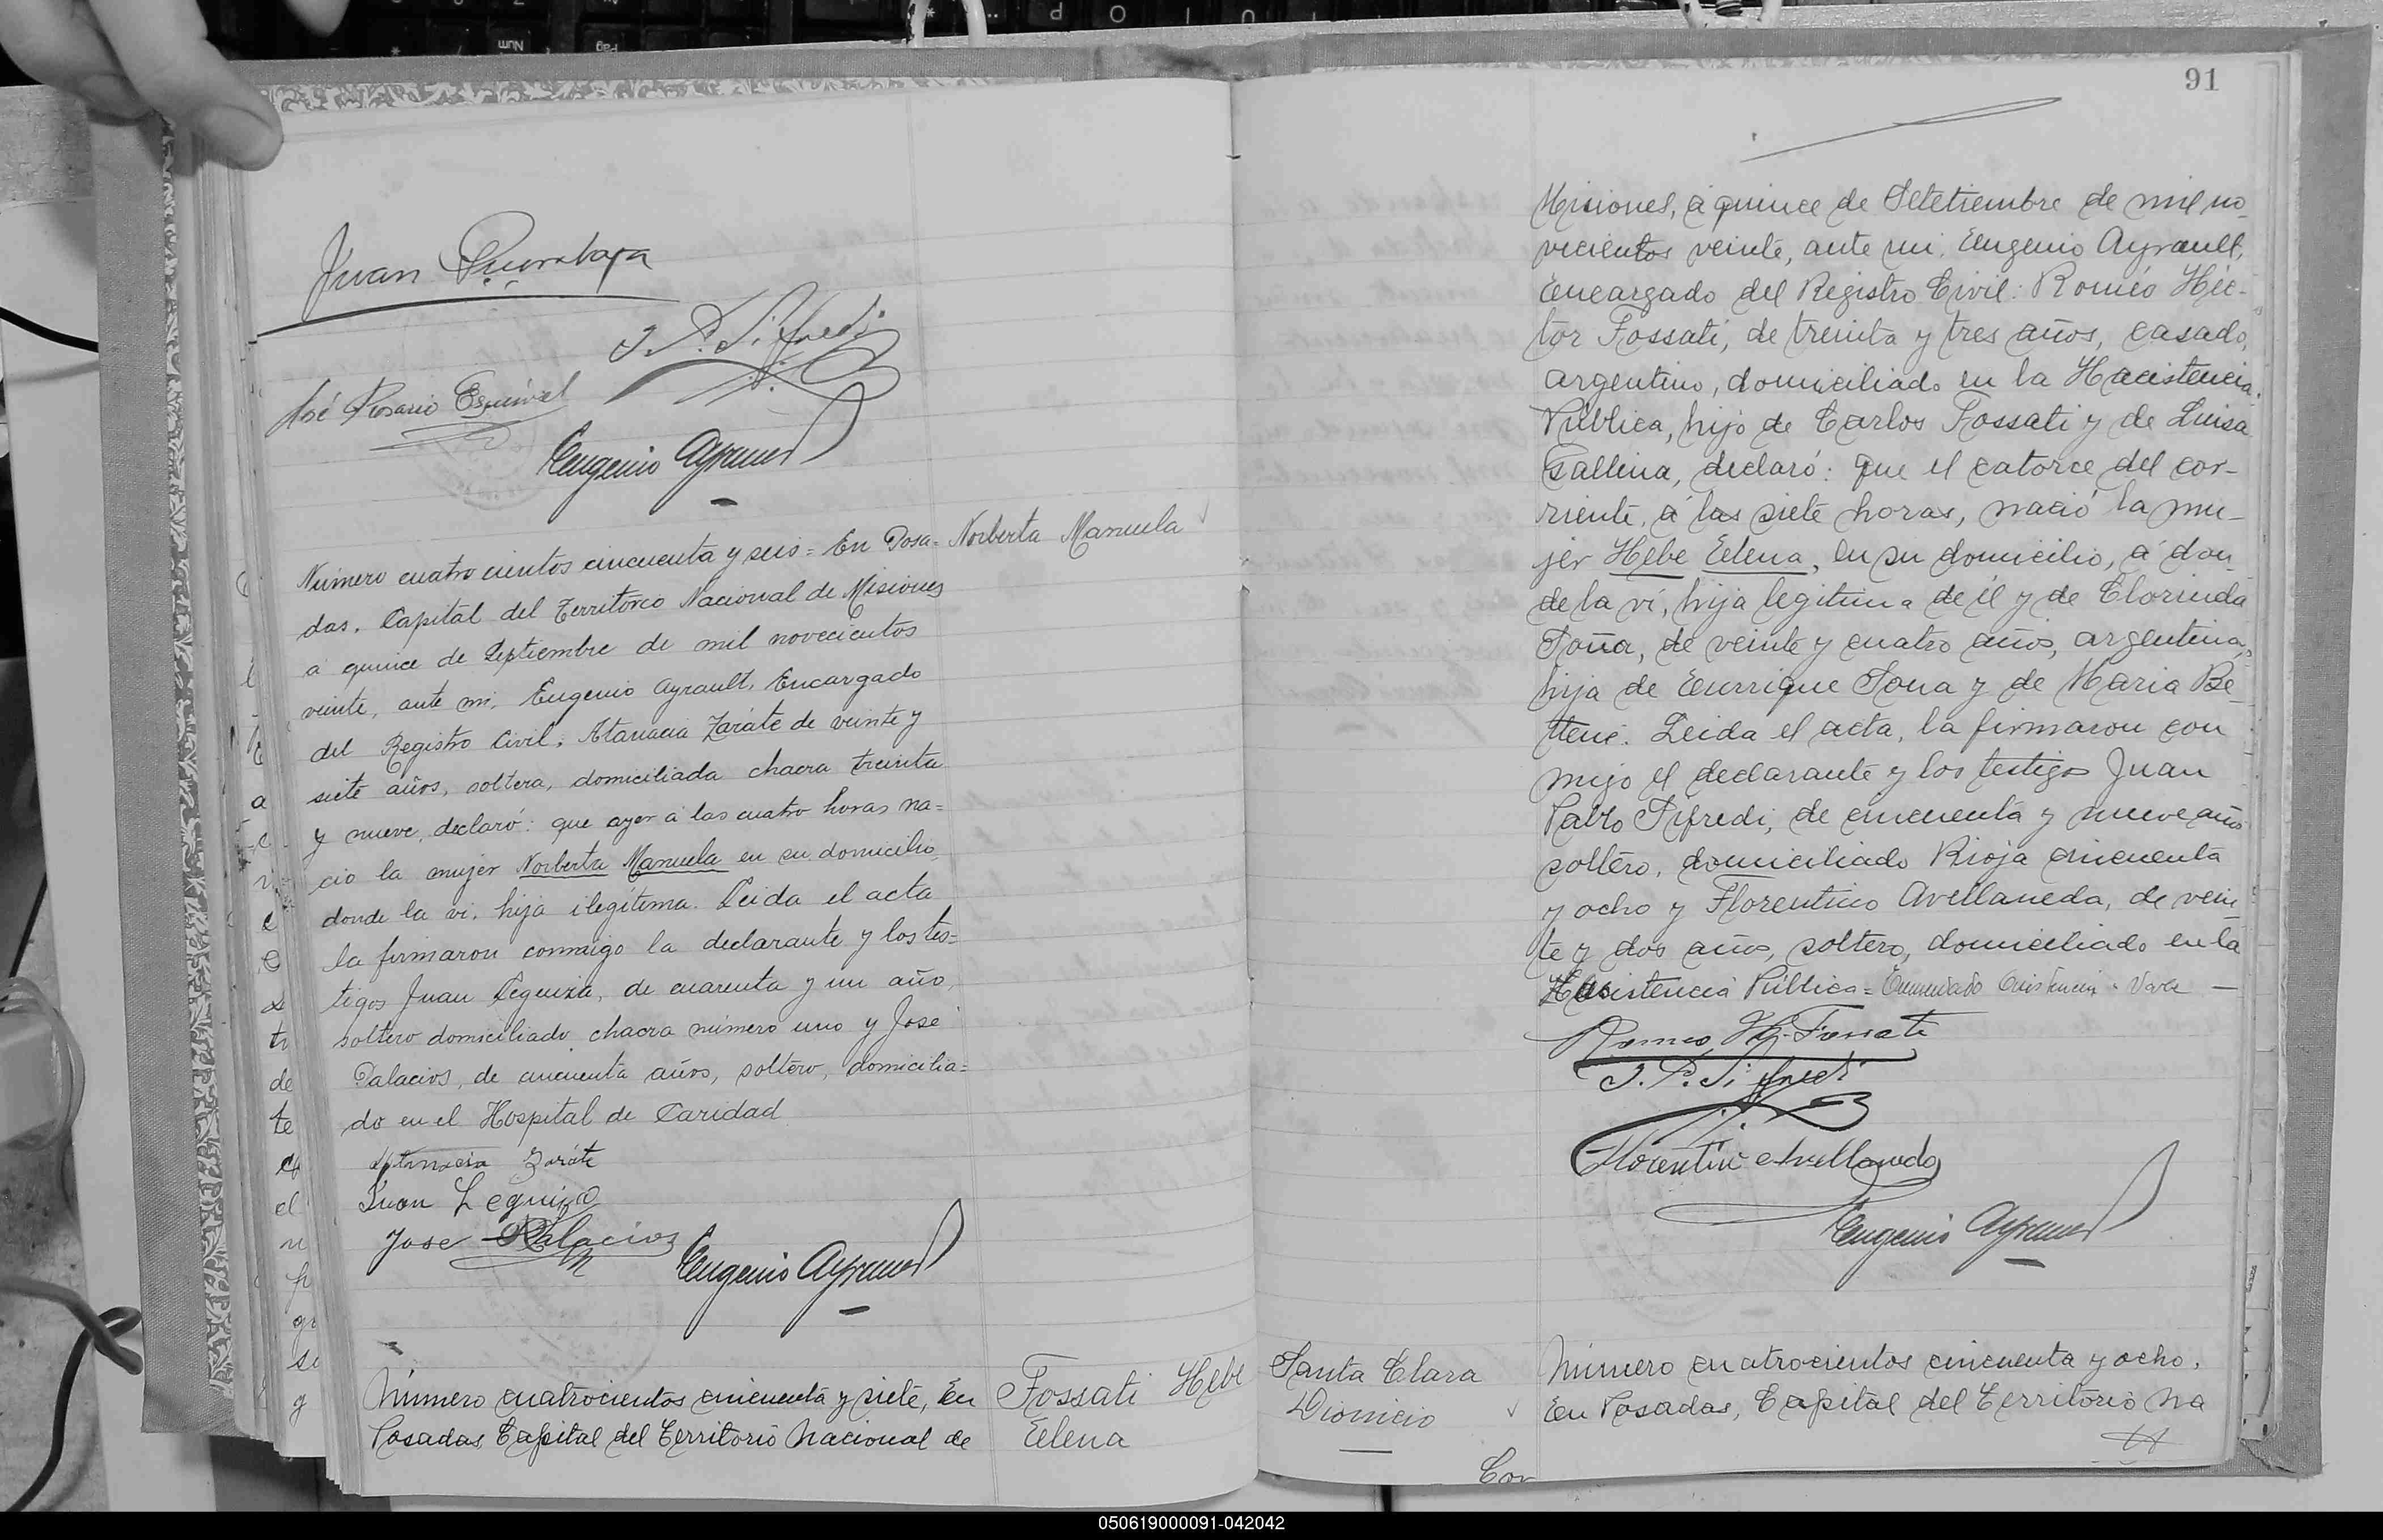 Juan
J. P. Sifredi
José Rosario Esquivel
Eugenio Ayrault
Norberta Manuela
Número cuatrocientos cincuenta y seis = En Posa=
das, Capital del Territorio Nacional de Misiones
a quince de Septiembre de mil novecientos
veinte, ante mi, Eugenio Ayrault, Encargado
del Registro Civil, Atanacia Zaráte de veinte y
siete años, soltera, domiciliada chacra treinta
y nueve, declaró: que ayer á las cuatro horas na=
ció la mujer Norberta Manuela en su domicilio,
donde la vi, hija ilegítima. Leida el acta
la firmaron conmigo la declarante y los tes=
tigos Juan Leguiza, de cuarenta y un año,
soltero domiciliado chacra número uno y José
Palacios, de cincuenta años, soltero, domicilia=
do en el Hospital de Caridad
Atanacia Zaráte
Juan Leguiza
Jose Palacios
Eugenio Ayrault
Fossati Hebe
Eelena
Número cuatrocientos cincuenta y siete, En
Posadas Capital del Territorio Nacional de
91
Misiones, á quince de Setetiembre de mil no-
vecientos veinte, ante mi, Eugenio Ayrault,
Encargado del Registro Civil: Roméo Héc-
tor Fossati, de treinta y tres años, casado,
argentino, domiciliado en la Hacistencia
Pública, hijo de Carlos Fossati y de Luisa
Gallina, declaró: que el catorce del cor-
riente, á las siete horas, nació la mu-
jer Hebe Eelena, en su domicilio, á don-
de la ví, hija legitima de él y de Clorinda
Soña, de veinte y cuatro años, argentina,
hija de Enrrique Sona y de Maria Be-
ttene. Leida el acta, la firmaron con
migo el declarante y los testigos Juan
Pablo Sifredi, de cincuenta y nueve años
soltéro, domiciliado Rioja cincuenta
y ocho y Florentino Avellaneda, de vein
te y dos años, soltero, domiciliado en la
Hasistencia Pública = Enmendado Asistencia = Vale —
Romeo H. Fossati
J. P. Sifredi
Florentino Avellaneda
Eugenio Ayrault
Santa Clara
Dionicio
Número cuatrocientos cincuenta y ocho.
En Posadas, Capital del Territorio Na
Cor
050619000091-042042